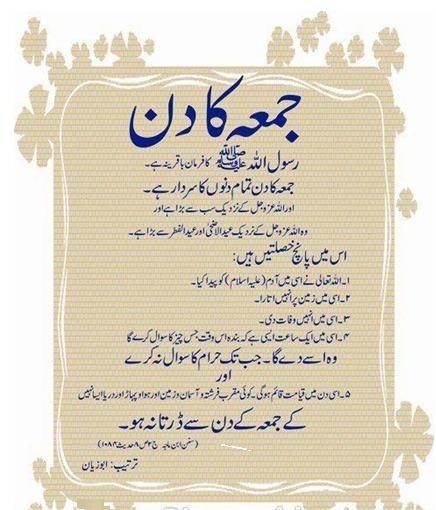 جمعہ کا دن
رسول اللہ ﷺ کا فرمان باقرینہ ہے۔
جمعہ کا دن تمام دنوں کا سردار ہے۔
اور اللہ عزوجل کے نزدیک سب سے بڑا ہے اور
وہ اللہ عزوجل کے نزدیک عیدالاضحیٰ اور عیدالفطر سے بڑا ہے۔
اس میں پانچ خصلتیں ہیں:
۱۔ اللہ تعالیٰ نے اسی میں آدم (علیہ السلام) کو پیدا کیا۔
۲۔ اسی میں زمین پر انہیں اتارا۔
۳۔ اسی میں انہیں وفات دی۔
۴۔ اسی میں ایک ساعت ایسی ہے کہ بندہ اس وقت جس چیز کا سوال کرے گا
وہ اسے دے گا۔ جب تک حرام کا سوال نہ کرے
اور
۵۔ اسی دن میں قیامت قائم ہوگی۔ کوئی مقرب فرشتہ و آسمان و زمین اور ہوا و پہاڑ اور دریا ایسا نہیں
کے جمعہ کے دن سے ڈرتا نہ ہو۔
(سنن ابن ماجہ ج۲ ص۸ حدیث ۱۰۸۴)
ترتیب: ابوزیان